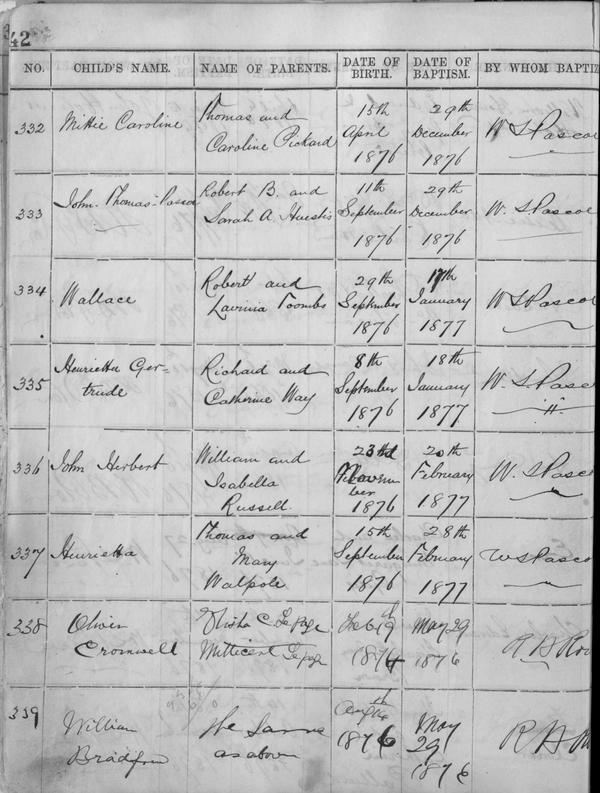 42
NO. CHILD'S NAME. NAME OF PARENTS. DATE OF BIRTH. DATE OF BAPTISM. BY WHOM BAPTIZ
332 Mittie Caroline Thomas and Caroline Pickard 15th April 1876 29th December 1876 W S Pascoe
333 John Thomas Pascoe Robert B. and Sarah A. Huestis 11th September 1876 29th December 1876 W. S. Pascoe
334 Wallace Robert and Lavinia Toombs 29th September 1876 17th January 1877 W S Pascoe
335 Henrietta Gertrude Richard and Catherine Way 8th September 1876 18th January 1877 W. S. Pasc
336 John Herbert William and Isabella Russell 23rd November 1876 20th February 1877 W. S. Pasco
337 Henrietta Thomas and Mary Walpole 15th September 1876 28th February 1877 W S Pasco
338 Oliver Cromwell Elisha C. Le Page Millicent Le Page 1874 May 29 1876
339 William Bradford The Same as above 1876 May 29 1876